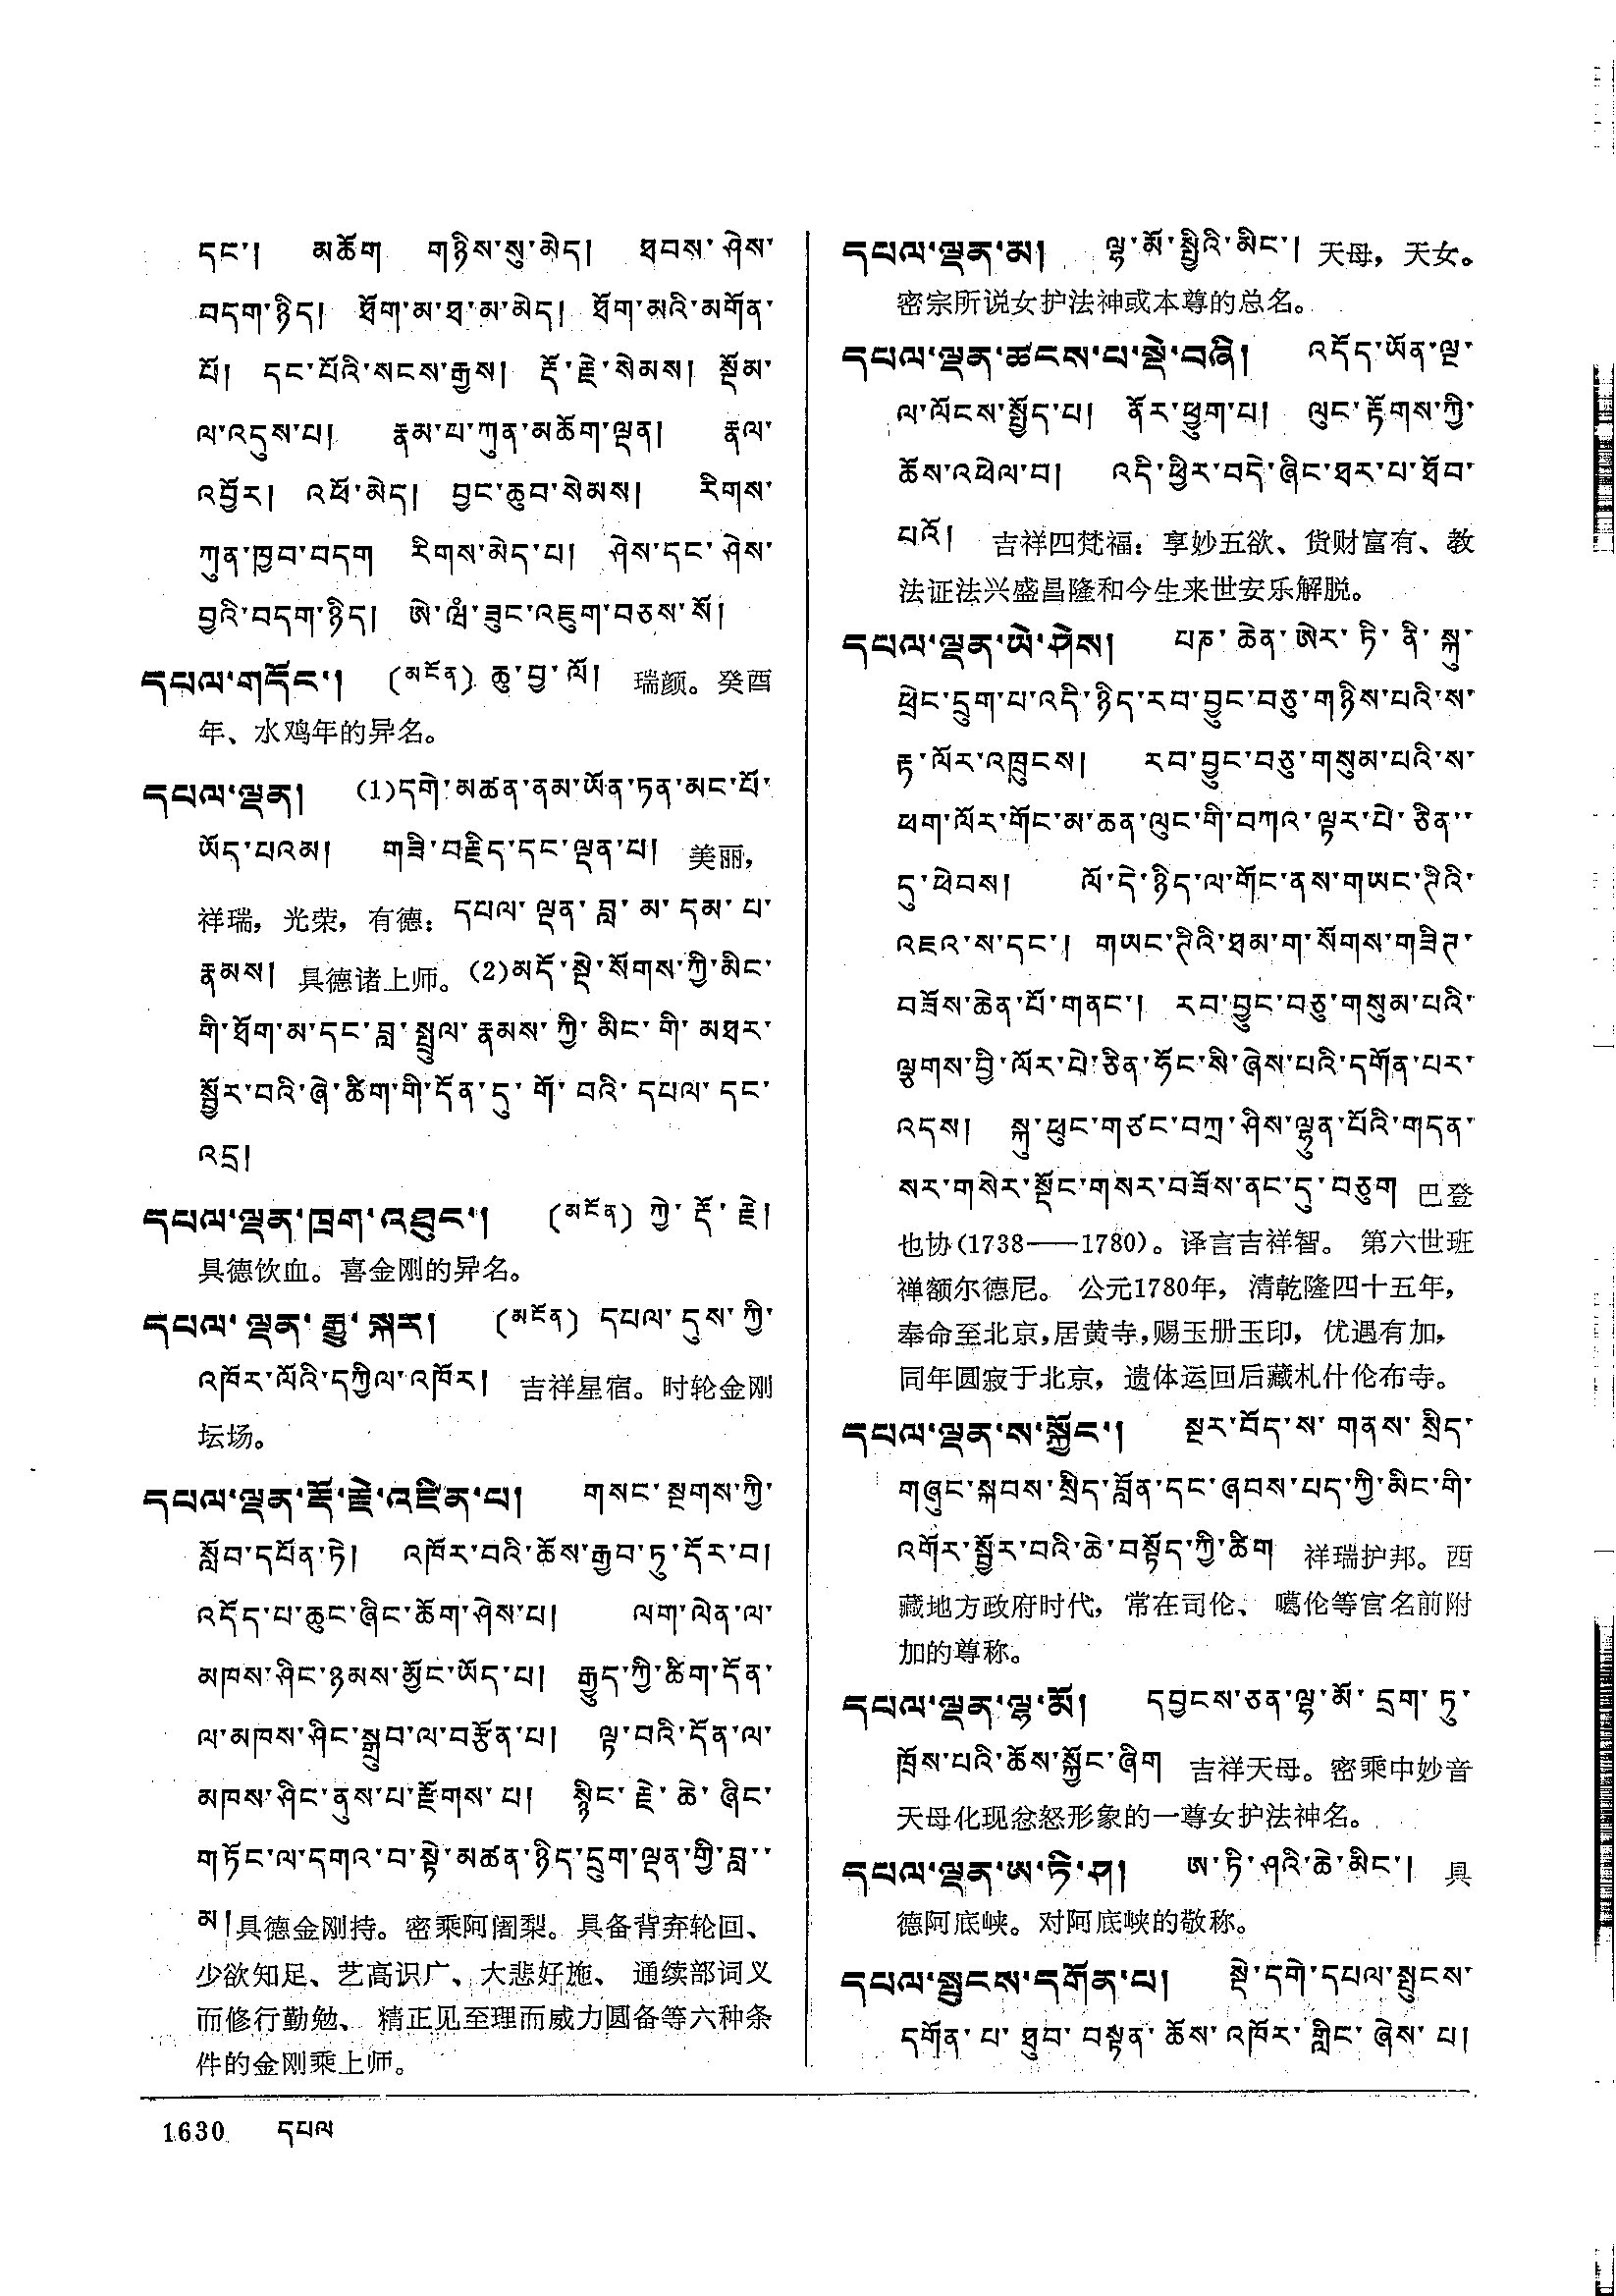 དང་། མཆོག གཉིས་སུ་མེད། ཐབས་ཤེས་
བདག་ཉིད། ཐོག་མ་ཐ་མ་མེད། ཐོག་མའི་མགོན་
པོ། དང་པོའི་སངས་རྒྱས། རྡོ་རྗེ་སེམས། སྡོམ་
ལ་འདུས་པ། རྣམ་པ་ཀུན་མཆོག་ལྡན། རྣལ་
འབྱོར། འཕོ་མེད། བྱང་ཆུབ་སེམས། རིགས་
ཀུན་ཁྱབ་བདག རིགས་མེད་པ། ཤེས་དང་ཤེས་
བྱའི་བདག་ཉིད། ཨེ་ཝཾ་ཟུང་འཇུག་བཅས་སོ།
དཔལ་གདོང་། (མངོན) ཆུ་བྱ་ལོ། 瑞颜。癸酉
年、水鸡年的异名。
དཔལ་ལྡན། (1)དགེ་མཚན་ནམ་ཡོན་ཏན་མང་པོ་
ཡོད་པའམ། གཟི་བརྗིད་དང་ལྡན་པ། 美丽，
祥瑞，光荣，有德：དཔལ་ལྡན་བླ་མ་དམ་པ་
རྣམས། 具德诸上师。(2)མདོ་སྡེ་སོགས་ཀྱི་མིང་
གི་ཐོག་མ་དང་བླ་སྤྲུལ་རྣམས་ཀྱི་མིང་གི་མཐར་
སྦྱོར་བའི་ཞེ་ཚིག་གི་དོན་དུ་གོ་བའི་དཔལ་དང་
འདྲ།
དཔལ་ལྡན་ཁྲག་འཐུང་། (མངོན) ཀྱེ་རྡོ་རྗེ།
具德饮血。喜金刚的异名。
དཔལ་ལྡན་རྒྱུ་སྐར། (མངོན) དཔལ་དུས་ཀྱི་
འཁོར་ལོའི་དཀྱིལ་འཁོར། 吉祥星宿。时轮金刚
坛场。
དཔལ་ལྡན་རྡོ་རྗེ་འཛིན་པ། གསང་སྔགས་ཀྱི་
སློབ་དཔོན་ཏེ། འཁོར་བའི་ཆོས་རྒྱབ་ཏུ་དོར་བ།
འདོད་པ་ཆུང་ཞིང་ཆོག་ཤེས་པ། ལག་ལེན་ལ་
མཁས་ཤིང་ཉམས་མྱོང་ཡོད་པ། རྒྱུད་ཀྱི་ཚིག་དོན་
ལ་མཁས་ཤིང་སྒྲུབ་ལ་བརྩོན་པ། ལྟ་བའི་དོན་ལ་
མཁས་ཤིང་ནུས་པ་རྫོགས་པ། སྙིང་རྗེ་ཆེ་ཞིང་
གཏོང་ལ་དགའ་བ་སྟེ་མཚན་ཉིད་དྲུག་ལྡན་གྱི་བླ་་
མ།具德金刚持。密乘阿阇梨。具备背弃轮回、
少欲知足、艺高识广、大悲好施、 通续部词义
而修行勤勉、 精正见至理而威力圆备等六种条
件的金刚乘上师。
དཔལ་ལྡན་མ། ལྷ་མོ་སྤྱིའི་མིང་། 天母，天女。
密宗所说女护法神或本尊的总名。
དཔལ་ལྡན་ཚངས་པ་སྡེ་བཞི། འདོད་ཡོན་ལྔ་
ལ་ལོངས་སྤྱོད་པ། ནོར་ཕྱུག་པ། ལུང་རྟོགས་ཀྱི་
ཆོས་འཕེལ་བ། འདི་ཕྱིར་བདེ་ཞིང་ཐར་པ་ཐོབ་
པའོ། 吉祥四梵福：享妙五欲、货财富有、教
法证法兴盛昌隆和今生来世安乐解脱。
དཔལ་ལྡན་ཡེ་ཤེས། པཎ་ཆེན་ཨེར་ཏི་ནི་སྐུ་
ཕྲེང་དྲུག་པ་འདི་ཉིད་རབ་བྱུང་བཅུ་གཉིས་པའི་ས་
རྟ་ལོར་འཁྲུངས། རབ་བྱུང་བཅུ་གསུམ་པའི་ས་
ཕག་ལོར་གོང་མ་ཆན་ལུང་གི་བཀའ་ལྟར་པེ་ཅིན་་
དུ་ཕེབས། ལོ་དེ་ཉིད་ལ་གོང་ནས་གཡང་ཊིའི་
འཇའ་ས་དང་། གཡང་ཊིའི་ཐམ་ག་སོགས་གཟིཊ་
བཟོས་ཆེན་པོ་གནང་། རབ་བྱུང་བཅུ་གསུམ་པའི་
ལྕགས་བྱི་ལོར་པེ་ཅིན་ཧོང་སི་ཞེས་པའི་དགོན་པར་
འདས། སྐུ་ཕུང་གཙང་བཀྲ་ཤིས་ལྷུན་པོའི་གདན་
སར་གསེར་སྡོང་གསར་བཟོས་ནང་དུ་བཅུག 巴登
也协(1738——1780)。译言吉祥智。 第六世班
禅额尔德尼。 公元1780年，清乾隆四十五年，
奉命至北京，居黄寺，赐玉册玉印，优遇有加，
同年圆寂于北京，遗体运回后藏札什伦布寺。
དཔལ་ལྡན་ས་སྐྱོང་། སྔར་བོད་ས་གནས་སྲིད་
གཞུང་སྐབས་སྲིད་བློན་དང་ཞབས་པད་ཀྱི་མིང་གི་
འགོར་སྦྱོར་བའི་ཆེ་བསྟོད་ཀྱི་ཚིག 祥瑞护邦。西
藏地方政府时代，常在司伦、 噶伦等官名前附
加的尊称。
དཔལ་ལྡན་ལྷ་མོ། དབྱངས་ཅན་ལྷ་མོ་དྲག་ཏུ་
ཁྲོས་པའི་ཆོས་སྐྱོང་ཞིག 吉祥天母。密乘中妙音
天母化现忿怒形象的一尊女护法神名。
དཔལ་ལྡན་ཨ་ཏི་ཤ། ཨ་ཏི་ཤའི་ཆེ་མིང་། 具
德阿底峡。对阿底峡的敬称。
དཔལ་སྤུངས་དགོན་པ། སྡེ་དགེ་དཔལ་སྤུངས་
དགོན་པ་ཐུབ་བསྟན་ཆོས་འཁོར་གླིང་ཞེས་པ།
1630 དཔལ